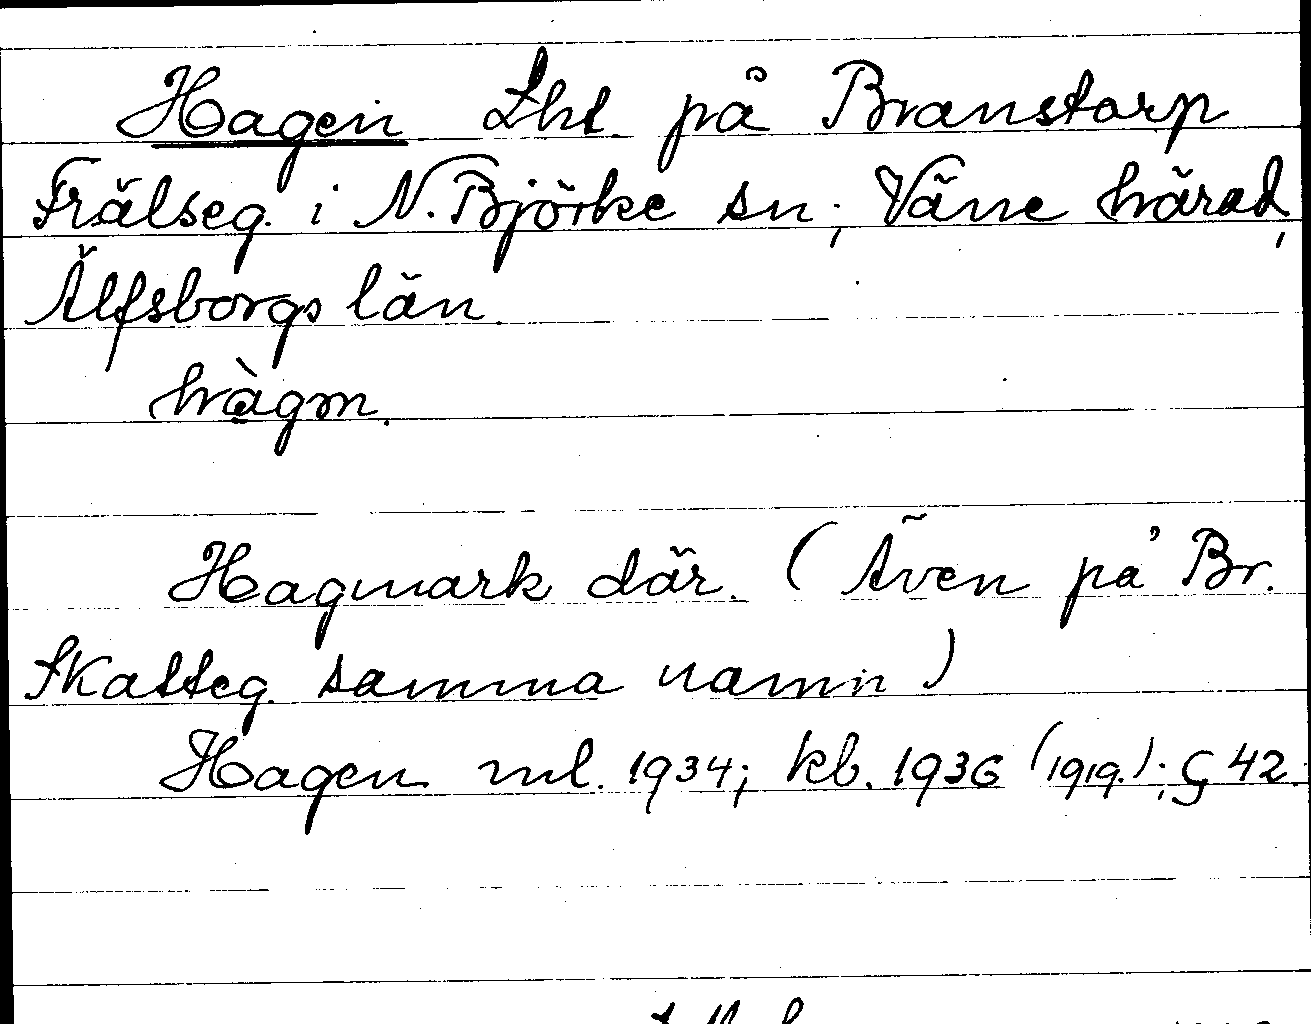 Hagen Lht. på Branstorp
Frälseg. i N. Björke sn; Väne härad,
Älfsborgs län.
hàgɷn.
Hagmark där. (Även på Br.
Skatteg. samma namn)
Hagen ml. 1934; kb. 1936 (1919.); G 42.